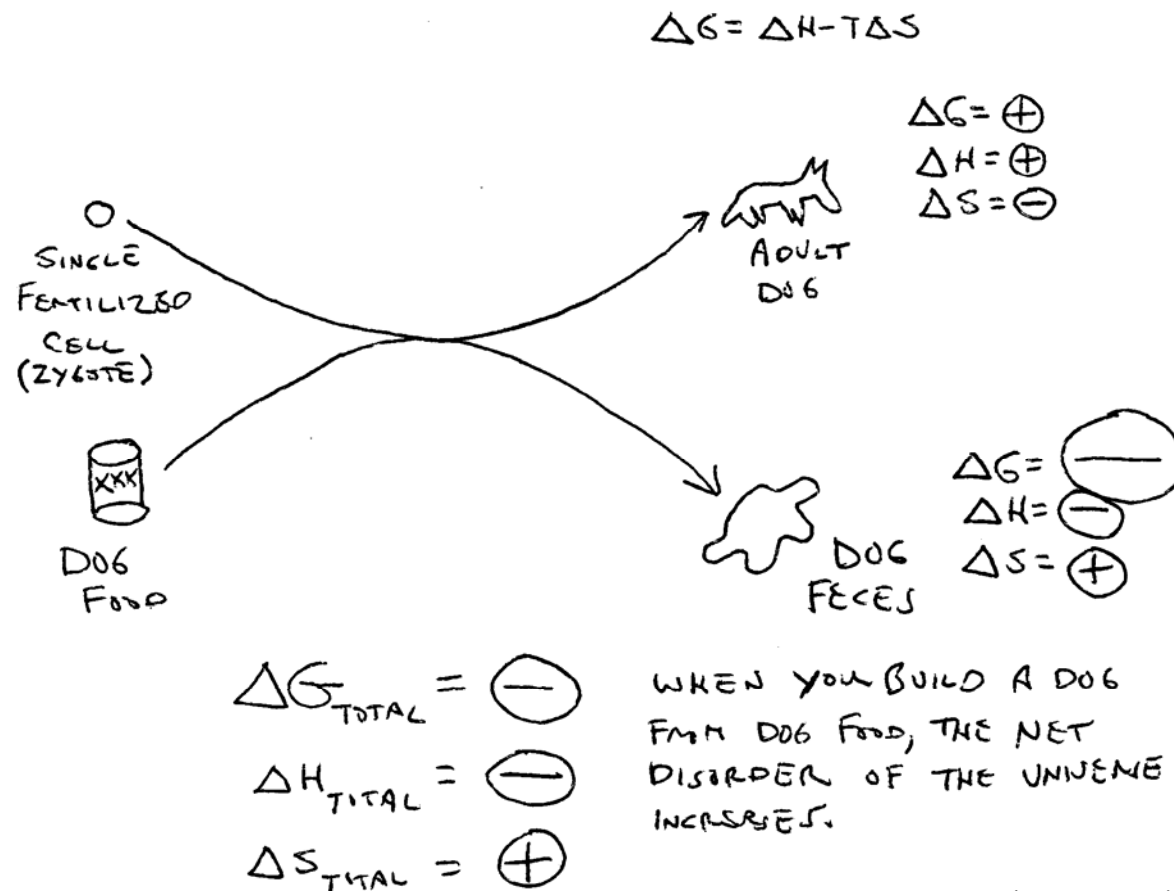 ΔG = ΔH-TΔS
ΔG = ⊕
ΔH = ⊕
ΔS = ⊖
SINGLE
FERTILIZED
CELL
(ZYGOTE)
ADULT
DOG
XXX
DOG
FOOD
ΔG = ⊖
ΔH = ⊖
ΔS = ⊕
DOG
FECES
ΔG TOTAL = ⊖
ΔH TOTAL = ⊖
ΔS TOTAL = ⊕
WHEN YOU BUILD A DOG
FROM DOG FOOD, THE NET
DISORDER OF THE UNIVERSE
INCREASES.